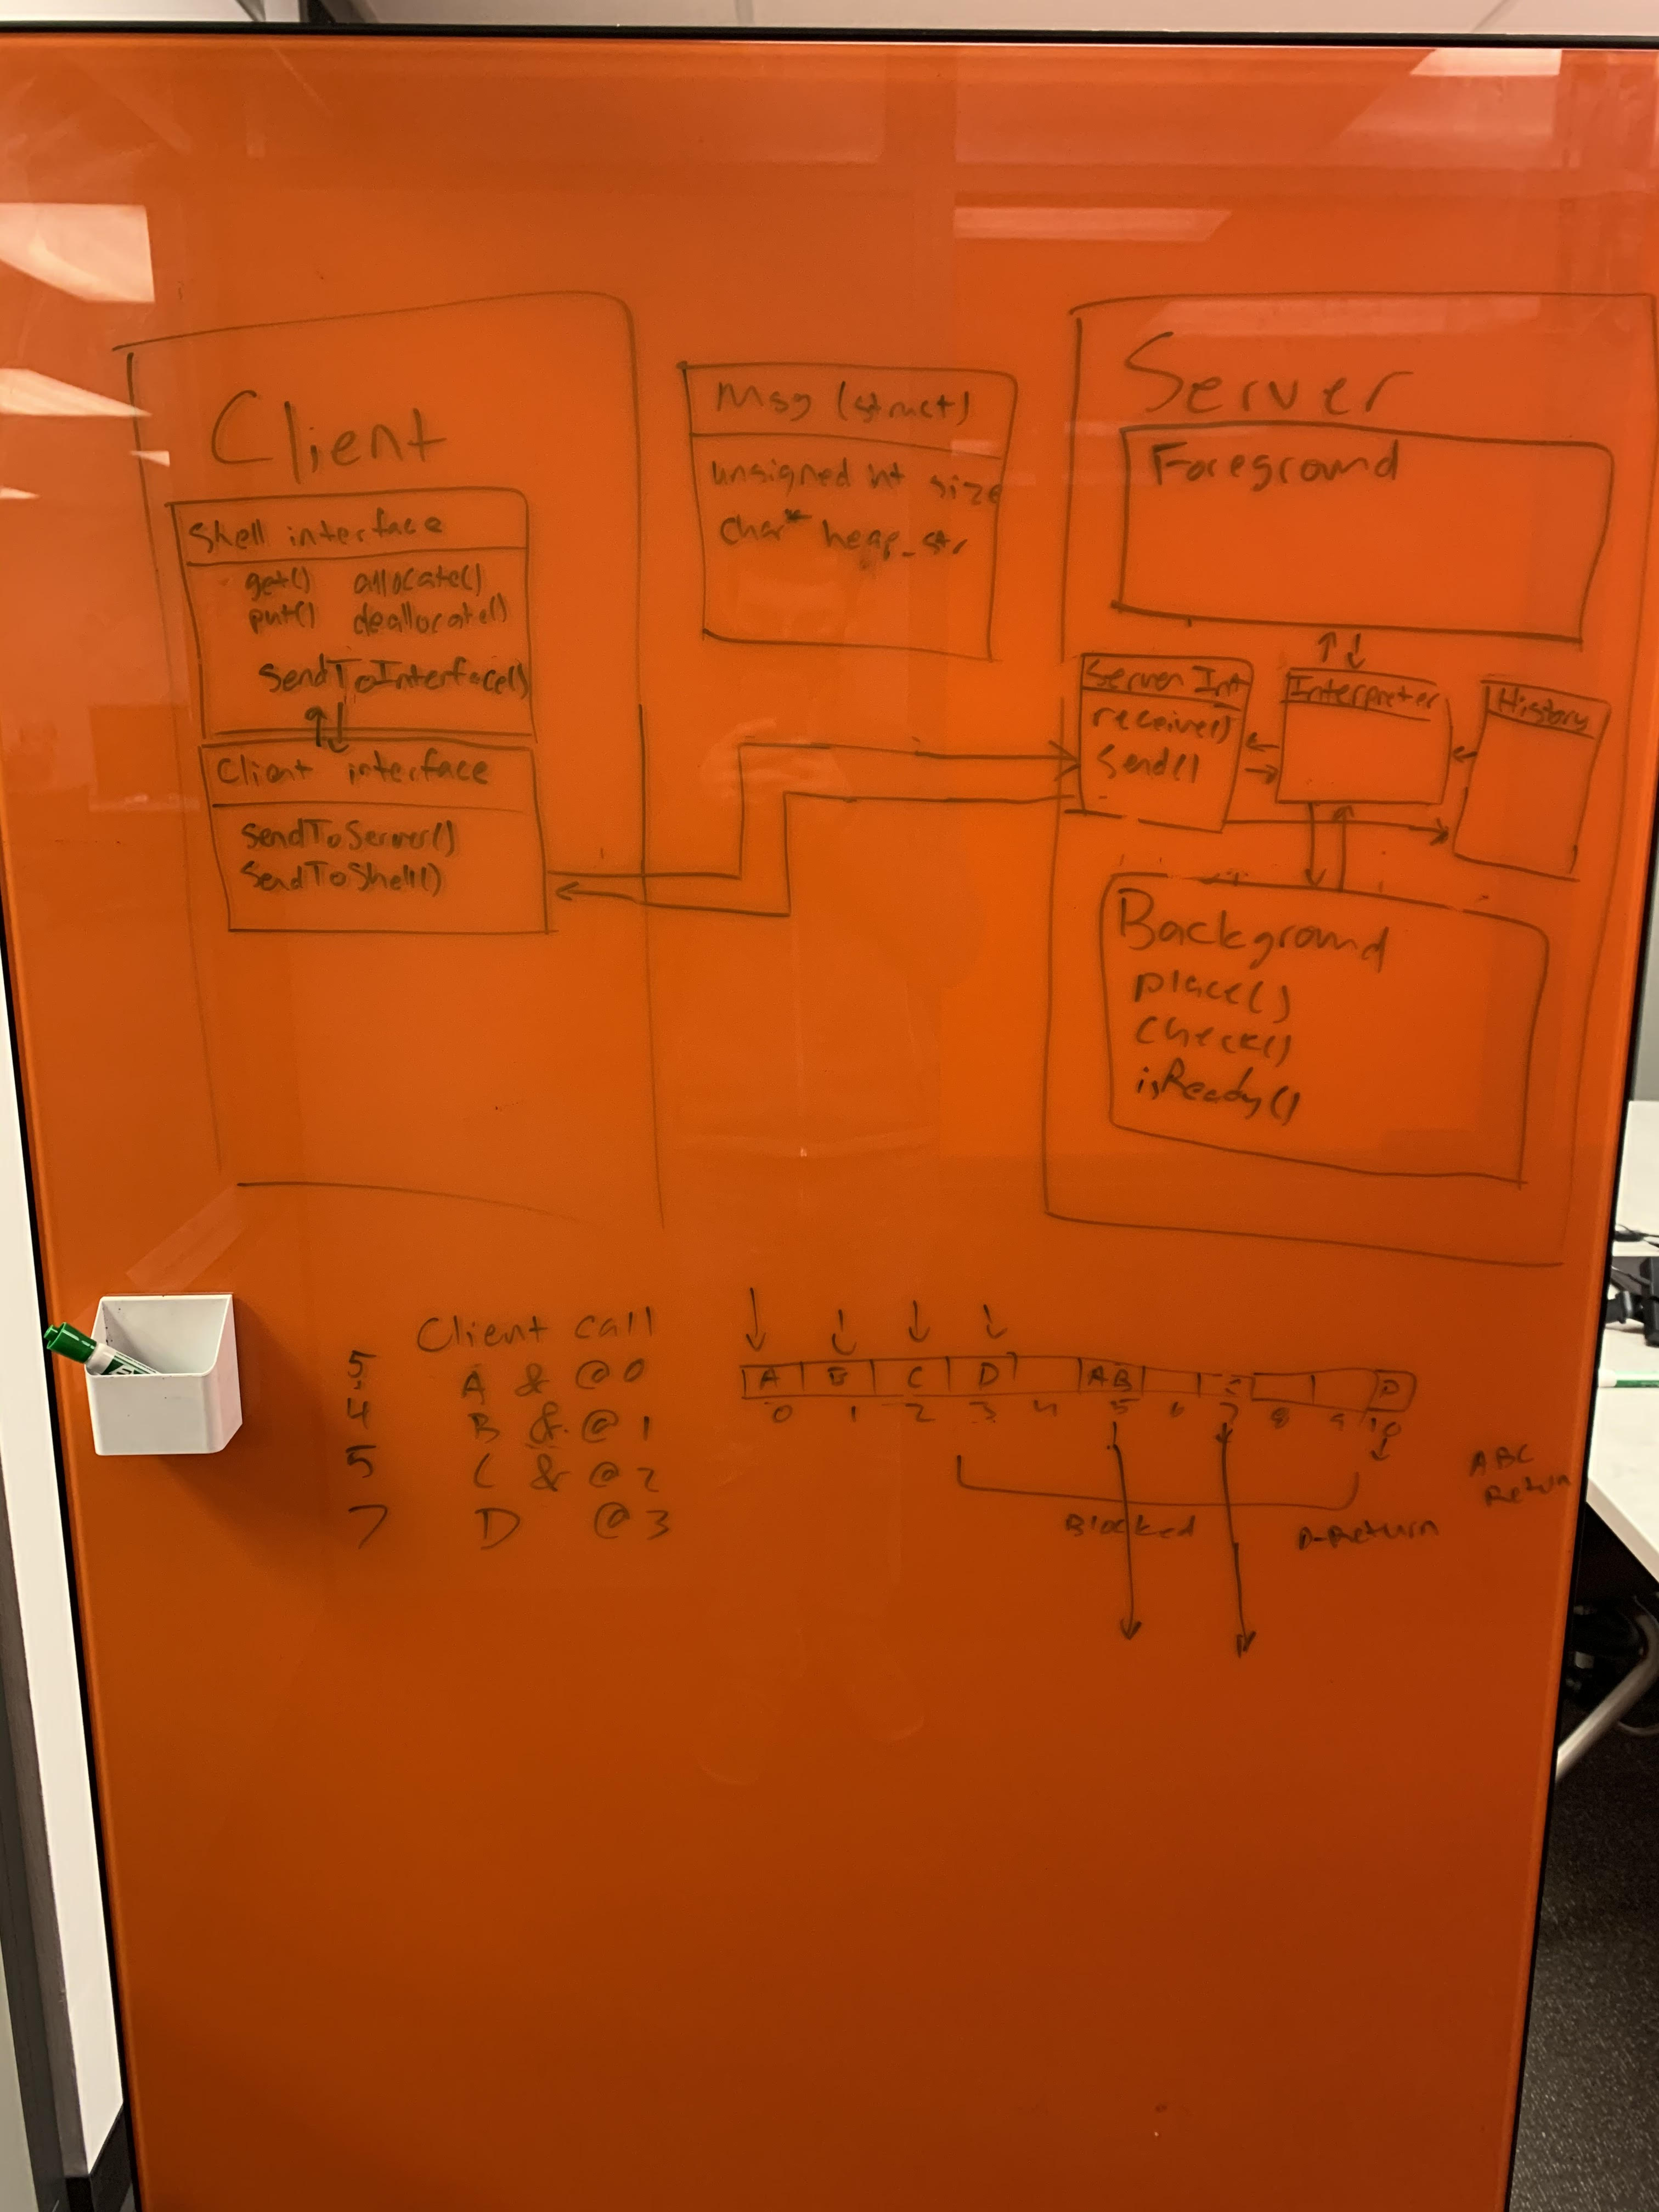 Client
Shell interface
get() allocate()
put() deallocate()
SendToInterface()
Client interface
SendToServer()
SendToShell()
Msg (struct)
unsigned int size
char* heap_str
Server
Foreground
Server Int
receive()
Send()
Interpreter
History
Background
place()
Check()
isReady()
Client call
5 A & @0
4 B & @1
5 C & @2
7 D @3
A B C D AB C D
0 1 2 3 4 5 6 7 8 9 10
Blocked
D-Return
ABC
Return